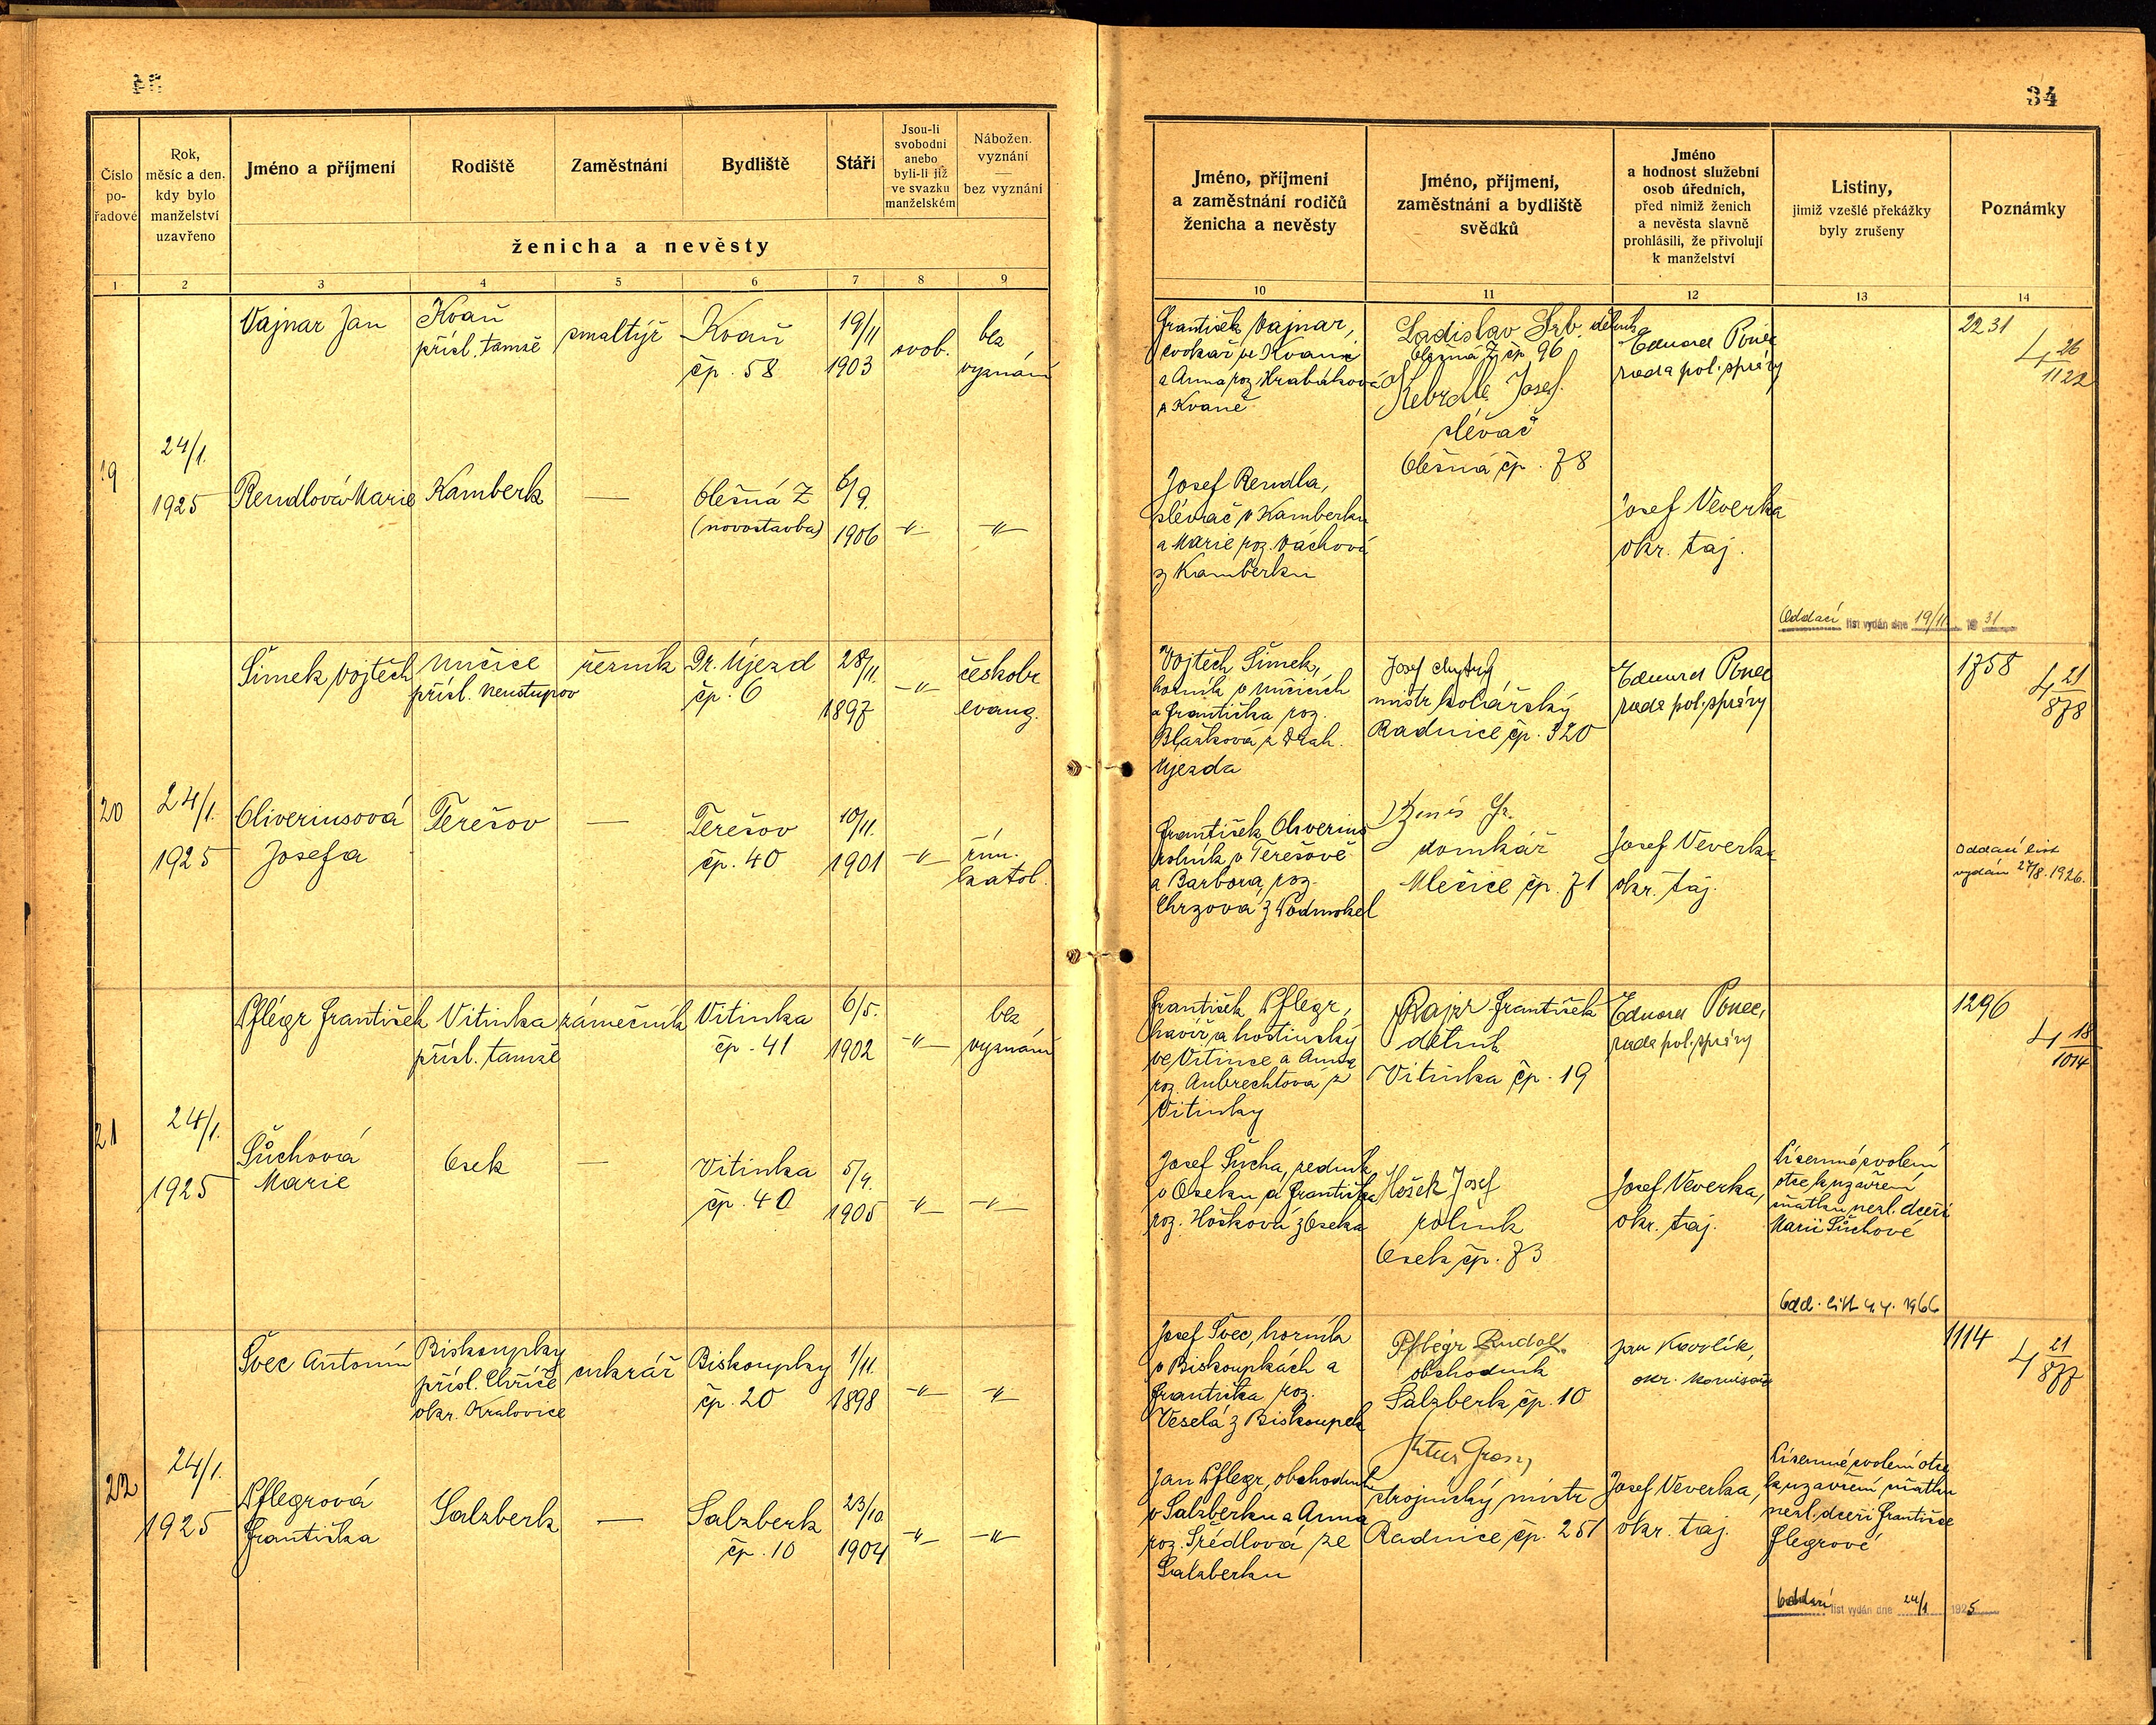 34
Číslo po-řadové
Rok, měsíc a den, kdy bylo manželství uzavřeno
Jméno a příjmení
Rodiště
Zaměstnání
Bydliště
Stáří
Jsou-li svobodni anebo byli-li již ve svazku manželském
Nábožen. vyznání — bez vyznání
ženicha a nevěsty
Jméno, příjmení a zaměstnání rodičů ženicha a nevěsty
Jméno, příjmení, zaměstnání a bydliště svědků
Jméno a hodnost služební osob úředních, před nimiž ženich a nevěsta slavně prohlásili, že přivolují k manželství
Listiny, jimiž vzešlé překážky byly zrušeny
Poznámky
1 2 3 4 5 6 7 8 9 10 11 12 13 14
19
24/1.
1925
Vajnar Jan
Kvaň
přísl. tamže
smaltýř
Kvaň
čp. 58
19/11
1903
svob.
bez
vyznání
František Vajnar,
cvokař ve Kvani
a Anna roz. Hrabáková
z Kvaně
Ladislav Srb. dělník
Olešná Z čp 96
Kebrdle Josef
slévač
Olešná čp. 78
Eduard Ponec
rada pol. správy
2231
26
1122
Rendlová Marie
Kamberk
—
Olešná Z
(novostavba)
6/9.
1906
-"-
-"-
Josef Rendla,
slévač v Kamberku
a Marie roz. Váchová
z Kamberku
Josef Veverka
okr. taj.
Oddací list vydán dne 19/11 19 31
20
24/1.
1925
Šimek Vojtěch
Mučice
přísl. Neustupov
řezník
Dr. Újezd
čp. 6
28/11.
1897
-"-
českobr
evang.
Vojtěch Šimek,
a Františka roz.
Blažková z Drah.
Újezda
Josef Chytrý
mistr kolářský
Radnice čp. 320
Eduard Ponec
rada pol. správy
1758
21
878
Oliveriusová
Josefa
Terešov
—
Terešov
čp. 40
10/11.
1901
-"-
řím.
katol.
František Oliverius
rolník v Terešově
a Barbora roz.
Chrzova z Podmokel
domkář
Mlečice čp. 71
Josef Veverka
okr. taj.
Oddací list
vydán 27/8. 1926.
21
24/1.
1925
Pflégr František
Vitinka
přísl. tamže
zámečník
Vitinka
čp. 41
6/5.
1902
-"-
bez
vyznání
František Pflegr,
havíř a hostinský
ve Vitince a Anna
roz. Aubrechtová z
Vitinky
Rajzr František
dělník
Vitinka čp. 19
Eduard Ponec,
rada pol. správy
1296
18
1014
Sůchová
Marie
Osek
—
Vitinka
čp. 40
5/4.
1905
-"-
-"-
Josef Sucha, zedník
v Oseku a Františka
roz. Hošková z Oseka
Hošek Josef
rolník
Osek čp. 73
Josef Veverka,
okr. taj.
Písemné svolení
otce k uzavření
sňatku nezl. dceři
Marii Sůchové
Odd. list 4.4. 1966
22
24/1.
1925
Švec Antonín
Biskoupky
přísl. Chříč
okr. Kralovice
cukrář
Biskoupky
čp. 20
1/11.
1898
-"-
-"-
Josef Švec, horník
v Biskoupkách a
Františka roz.
Veselá z Biskoupek
Pflégr Rudolf
obchodník
Salzberk čp. 10
Jan Kovolík,
okr. komisař
1114
21
877
Pflegrová
Františka
Salzberk
—
Salzberk
čp. 10
23/10
1904
-"-
-"-
Jan Pflegr, obchodník
v Salzberku a Anna
roz. Srédlová ze
Salzberku
strojnický mistr
Radnice čp. 251
Josef Veverka,
okr. taj.
Písemné svolení otce
k uzavření sňatku
nezl. dceři Františce
flegrové
Oddací list vydán dne 24/1 1925